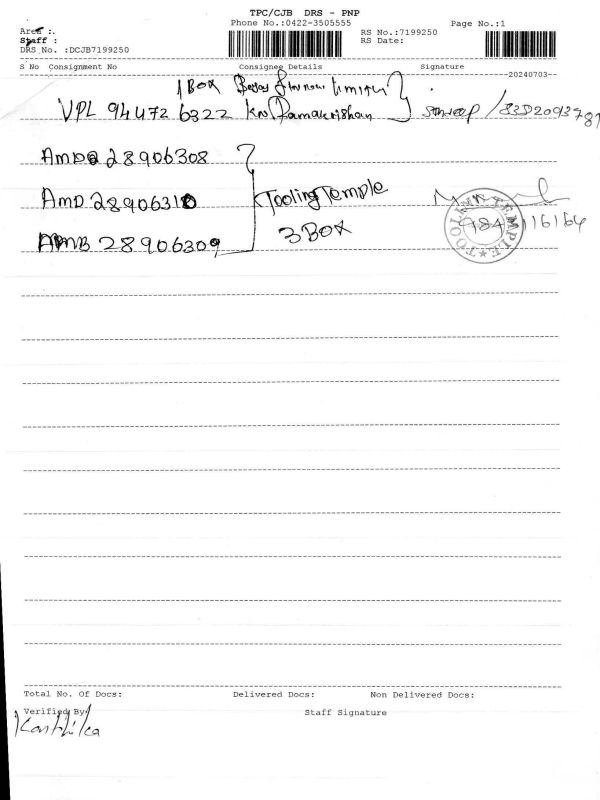 TPC/CJB DRS - PNP
Phone No.:0422-3505555
Page No.:1
Area :.
Staff :
RS No.:7199250
RS Date:
DRS No. :DCJB7199250
S No Consignment No Consignee Details Signature
--20240703--
1 Box Limited
VPL 944726322 Ramakrishan
AMD 28906308
AMD 28906310 Tooling Temple
AMB 28906309 3 Box
TOOLING TEMPLE
Total No. Of Docs: Delivered Docs: Non Delivered Docs:
Verified By: Staff Signature
Karthika